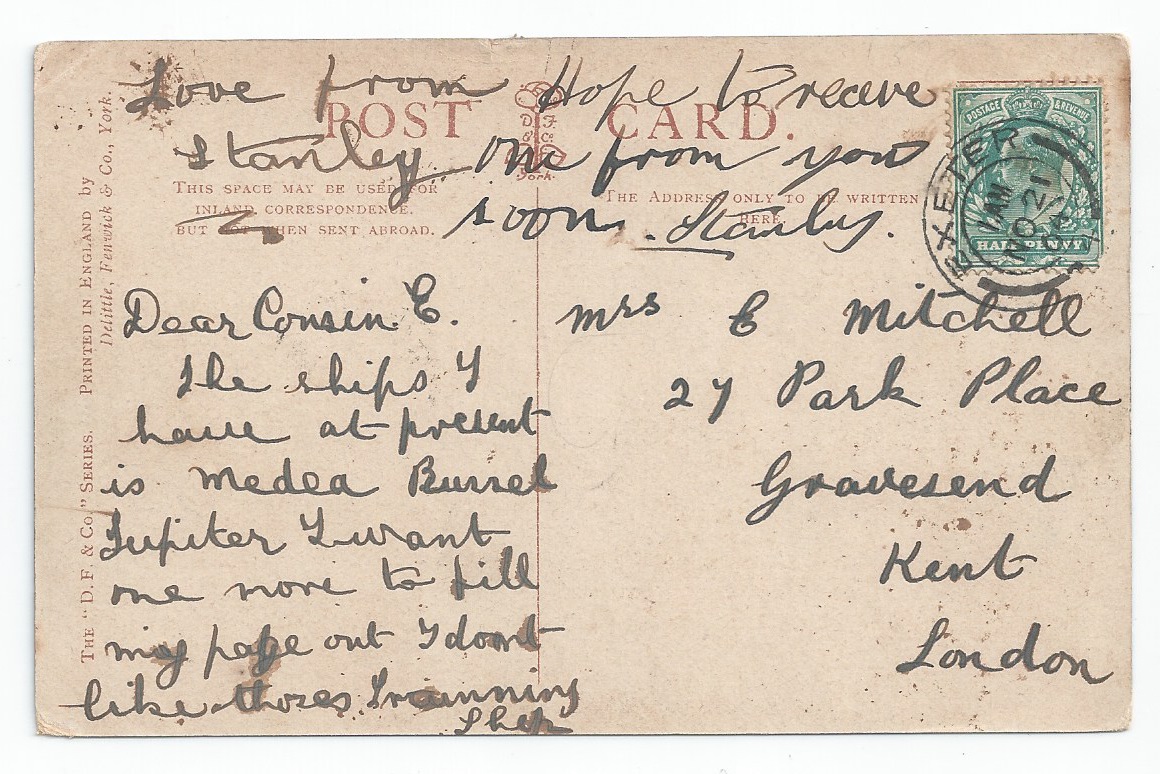 Love from
Stanley
Hope to receve
one from you
soon. Stanley.
POST CARD.
D.F.&Co.
York.
THIS SPACE MAY BE USED FOR
INLAND CORRESPONDENCE,
BUT NOT WHEN SENT ABROAD.
THE ADDRESS ONLY TO BE WRITTEN
HERE.
POSTAGE & REVENUE
HALFPENNY
EXETER
11 AM
NO 21
THE "D.F. & CO." SERIES. PRINTED IN ENGLAND by
Delittle, Fenwick & Co., York.
Dear Cousin. E.
The ships I
have at present
is Medea Burrel
Jupiter I want
one more to fill
my page out I dont
like thoses
Ship
Mrs E Mitchell
27 Park Place
Gravesend
Kent
London